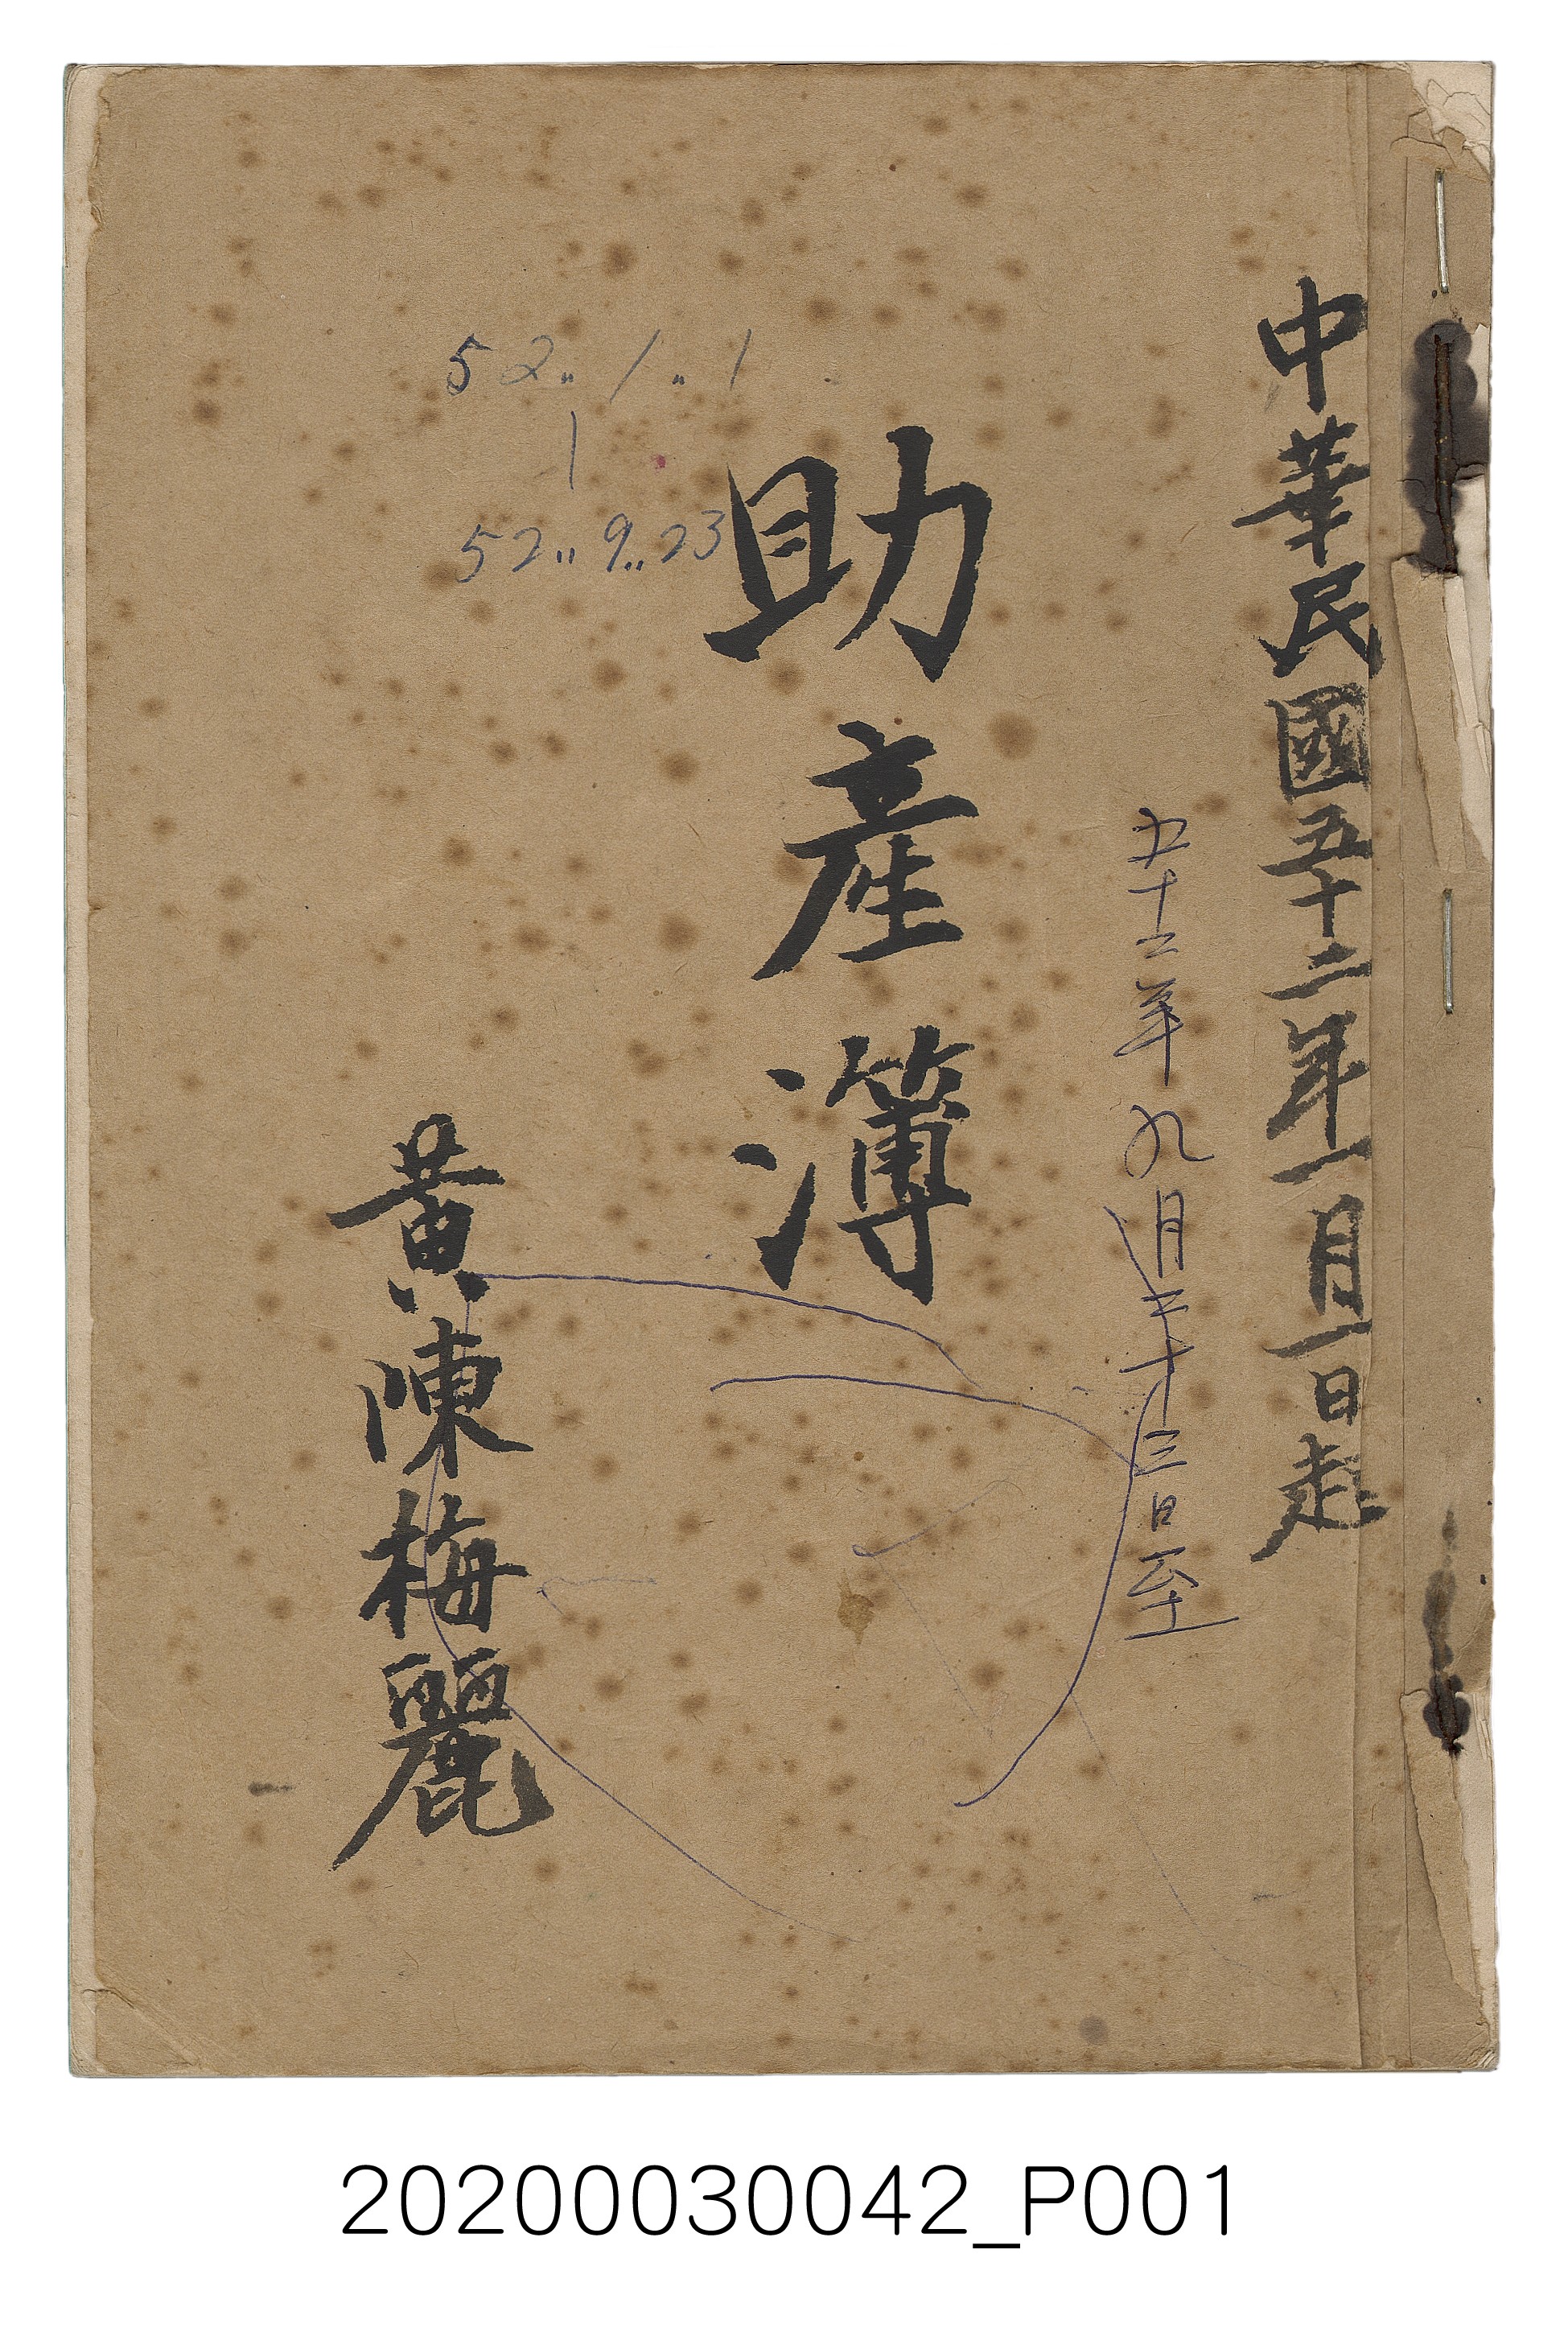 中華民國五十二年一月一日起
五十二年九月二十三日至
助產簿
52.. 1.. 1
|
52.. 9.. 23
黃陳梅麗
20200030042_P001